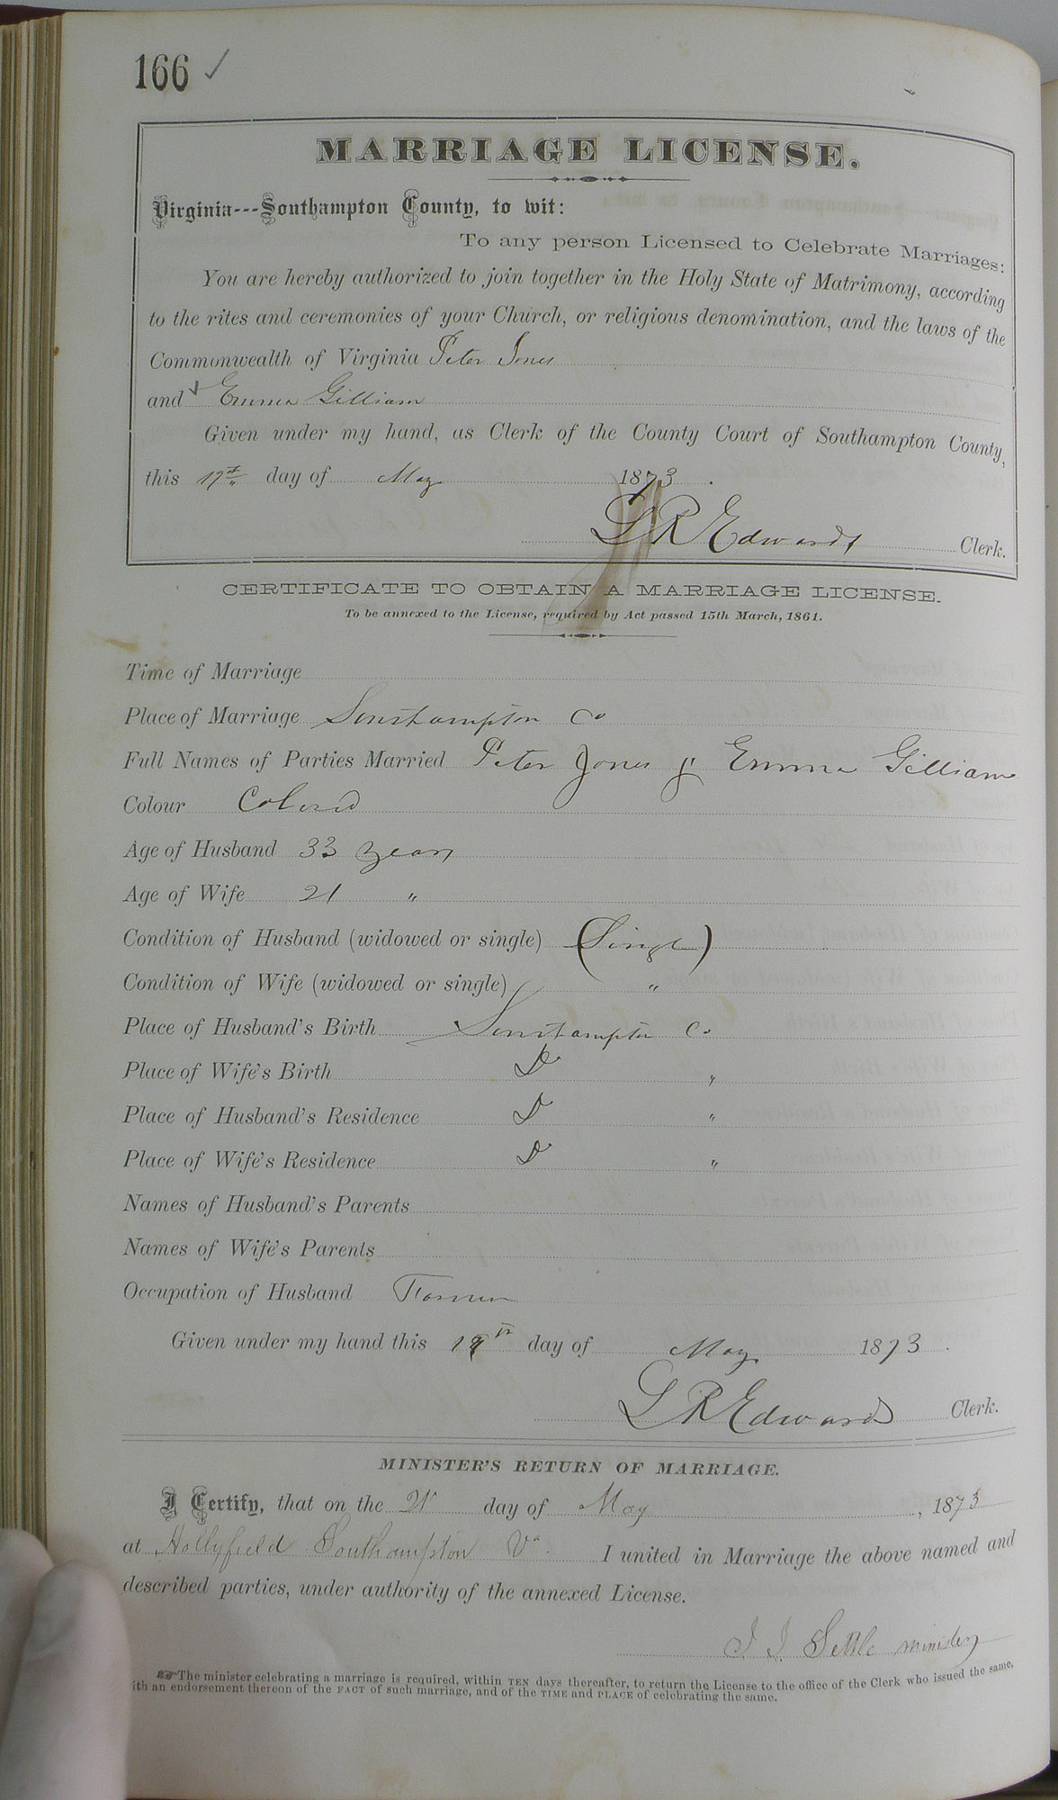 166 ✓
MARRIAGE LICENSE.
Virginia---Southampton County, to wit:
To any person Licensed to Celebrate Marriages:
You are hereby authorized to join together in the Holy State of Matrimony, according
to the rites and ceremonies of your Church, or religious denomination, and the laws of the
Commonwealth of Virginia Peter Jones
and Emma Gilliam
Given under my hand, as Clerk of the County Court of Southampton County,
this day of May 1873.
L R Edwards Clerk.
CERTIFICATE TO OBTAIN A MARRIAGE LICENSE.
To be annexed to the License, required by Act passed 15th March, 1861.
Time of Marriage
Place of Marriage Southampton Co
Full Names of Parties Married Peter Jones & Emma Gilliam
Colour Colored
Age of Husband 33 years
Age of Wife 21 "
Condition of Husband (widowed or single) (Single)
Condition of Wife (widowed or single) "
Place of Husband's Birth Southampton Co
Place of Wife's Birth Do "
Place of Husband's Residence Do "
Place of Wife's Residence Do "
Names of Husband's Parents
Names of Wife's Parents
Occupation of Husband Farmer
Given under my hand this day of May 1873.
L R Edwards Clerk.
MINISTER'S RETURN OF MARRIAGE.
I Certify, that on the day of May, 1873
at Hollyfield Southampton Va. I united in Marriage the above named and
described parties, under authority of the annexed License.
Settle minister
The minister celebrating a marriage is required, within TEN days thereafter, to return the License to the office of the Clerk who issued the same,
ith an endorsement thereon of the FACT of such marriage, and of the TIME and PLACE of celebrating the same.